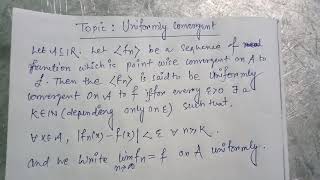 Topic : Uniformly Convergent
Let A⊆ℝ. Let <fn> be a Sequence of real
function which is point wise convergent on A to
f. Then the <fn> is said to be Uniformly
convergent on A to f if for every ε>0 ∃ a
K∈ℕ (depending only on ε) such that,
∀ x∈A, |fn(x) - f(x)| < ε ∀ n≥K.
and we write lim fn = f on A uniformly.
n→∞